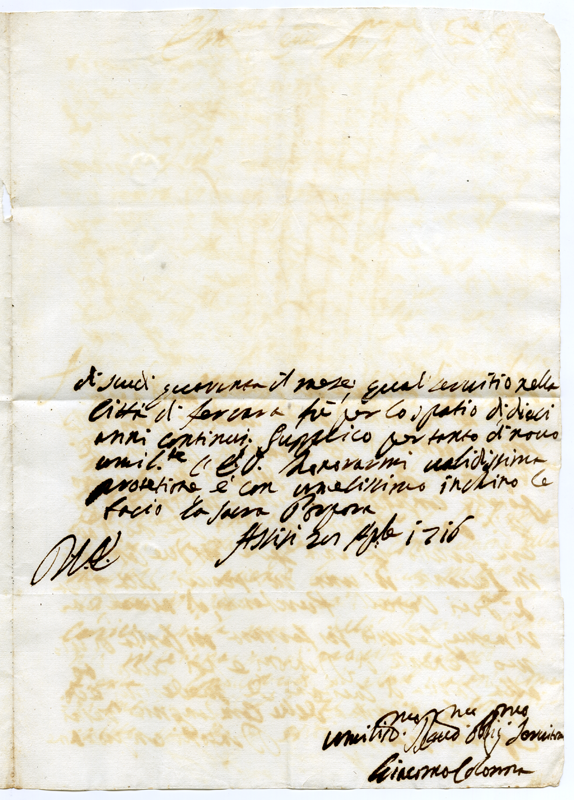 di scudi quaranta il mese, qual servitio nella
Città di Ferrara fù per lo spatio di dieci
anni continui. Supplico per tanto di novo
umil.te l'E.V. honorarmi validissima
protetione e con umilissimo inchino le
bacio la sacra Porpora
Assisi 1716
umiliss. Servitore
Giacomo Colonna